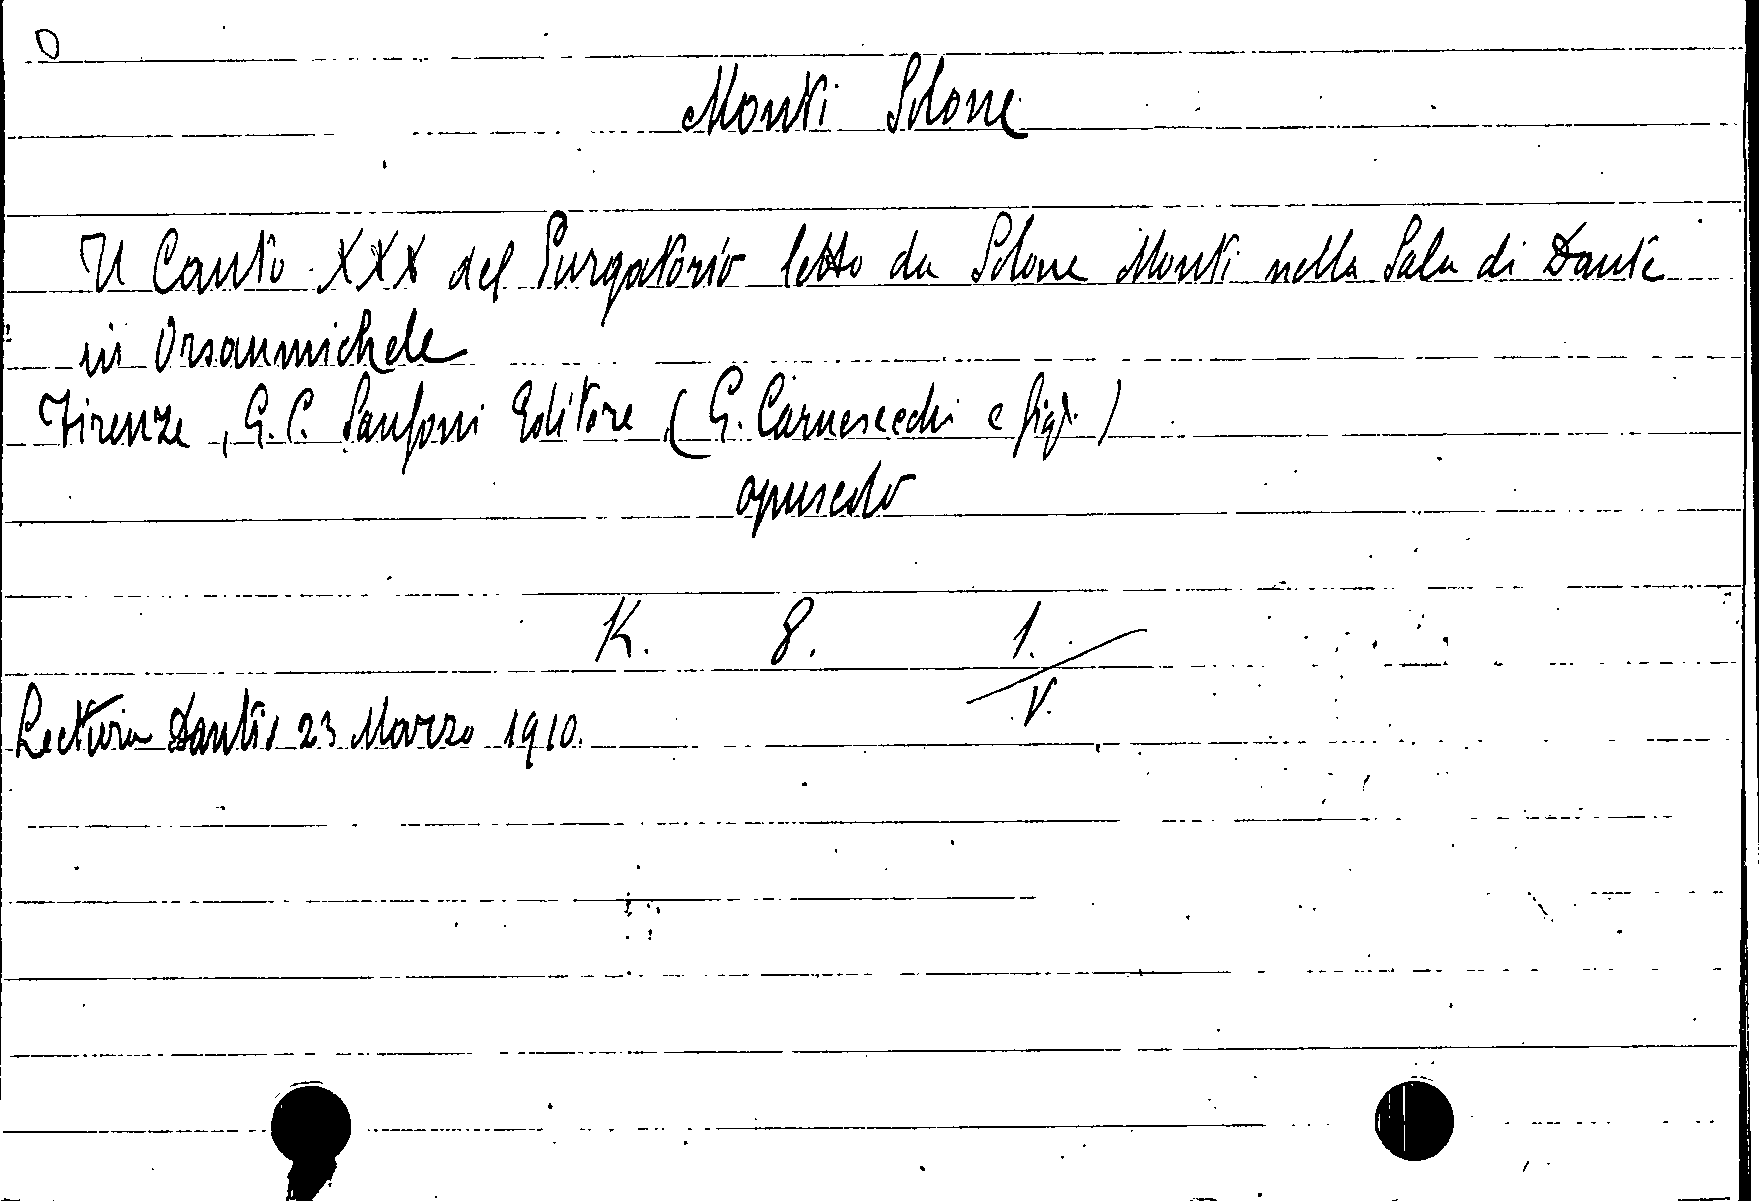 O
Monti Solone
Il Canto XXX del Purgatorio letto da Solone Monti nella Sala di Dante
in Orsanmichele
Firenze, G. C. Sansoni Editore (G. Carnesecchi e figl.)
opuscolo
K. 8. 1.
V.
Lectura Dantis 23 Marzo 1910.